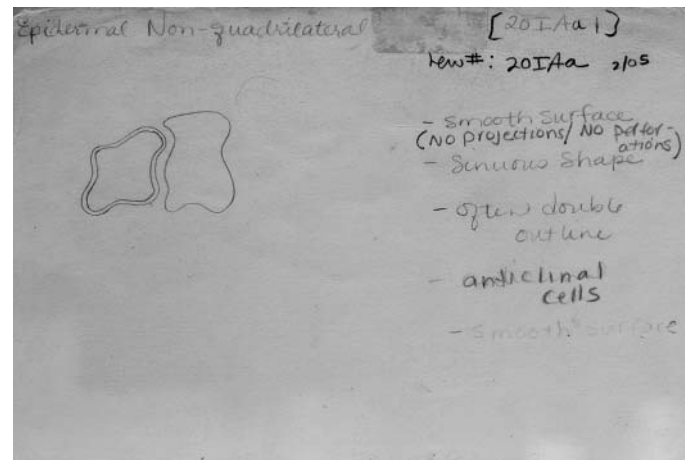 Epidermal Non-quadrilateral
[20IAa1]
new#: 20IAa 2/05
- smooth surface
(NO projections/ NO perfor-
ations)
- Sinuous shape
- often double
outline
- anticlinal
cells
- smooth surface